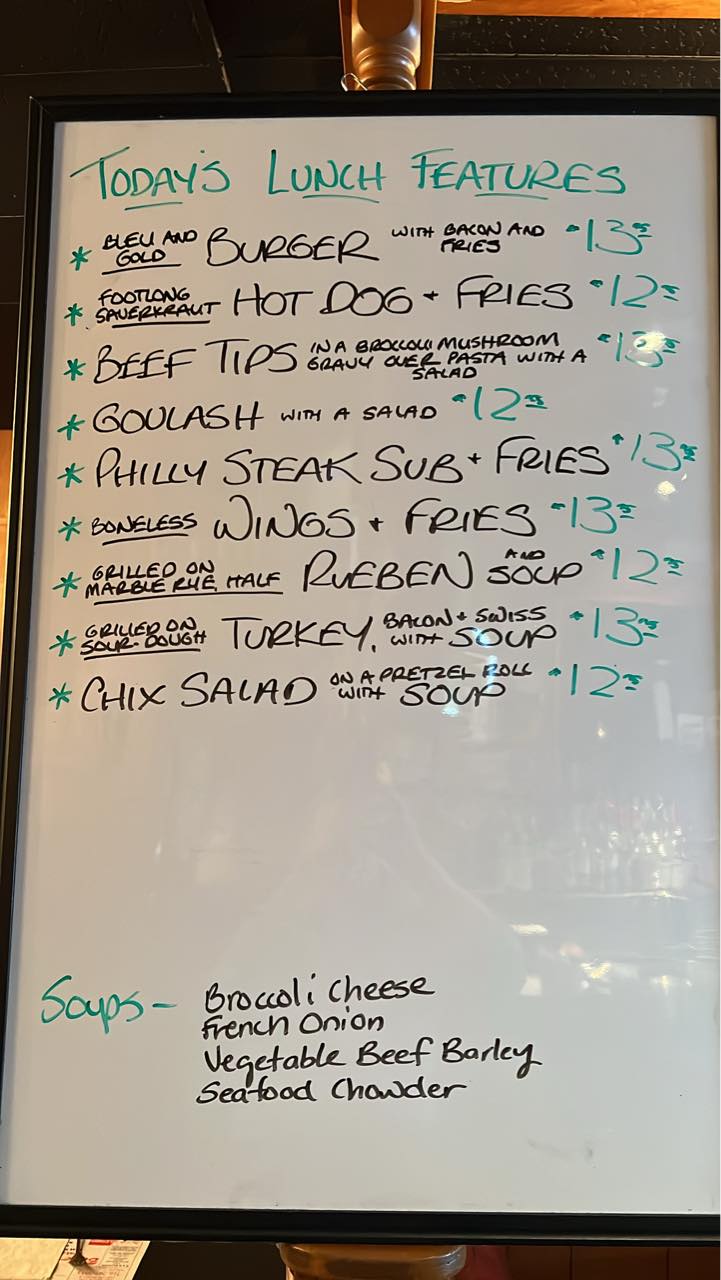 TODAY'S LUNCH FEATURES
* BLEU AND GOLD BURGER WITH BACON AND FRIES $13
* FOOTLONG SAUERKRAUT HOT DOG + FRIES $12
* BEEF TIPS IN A BROCCOLI MUSHROOM GRAVY OVER PASTA WITH A SALAD $13
* GOULASH WITH A SALAD $12
* PHILLY STEAK SUB + FRIES $13
* BONELESS WINGS + FRIES $13
* GRILLED ON MARBLE RYE, HALF RUEBEN AND SOUP $12
* GRILLED ON SOUR-DOUGH TURKEY, BACON + SWISS WITH SOUP $13
* CHIX SALAD ON A PRETZEL ROLL WITH SOUP $12
Soups - Broccoli Cheese
French Onion
Vegetable Beef Barley
Seafood Chowder